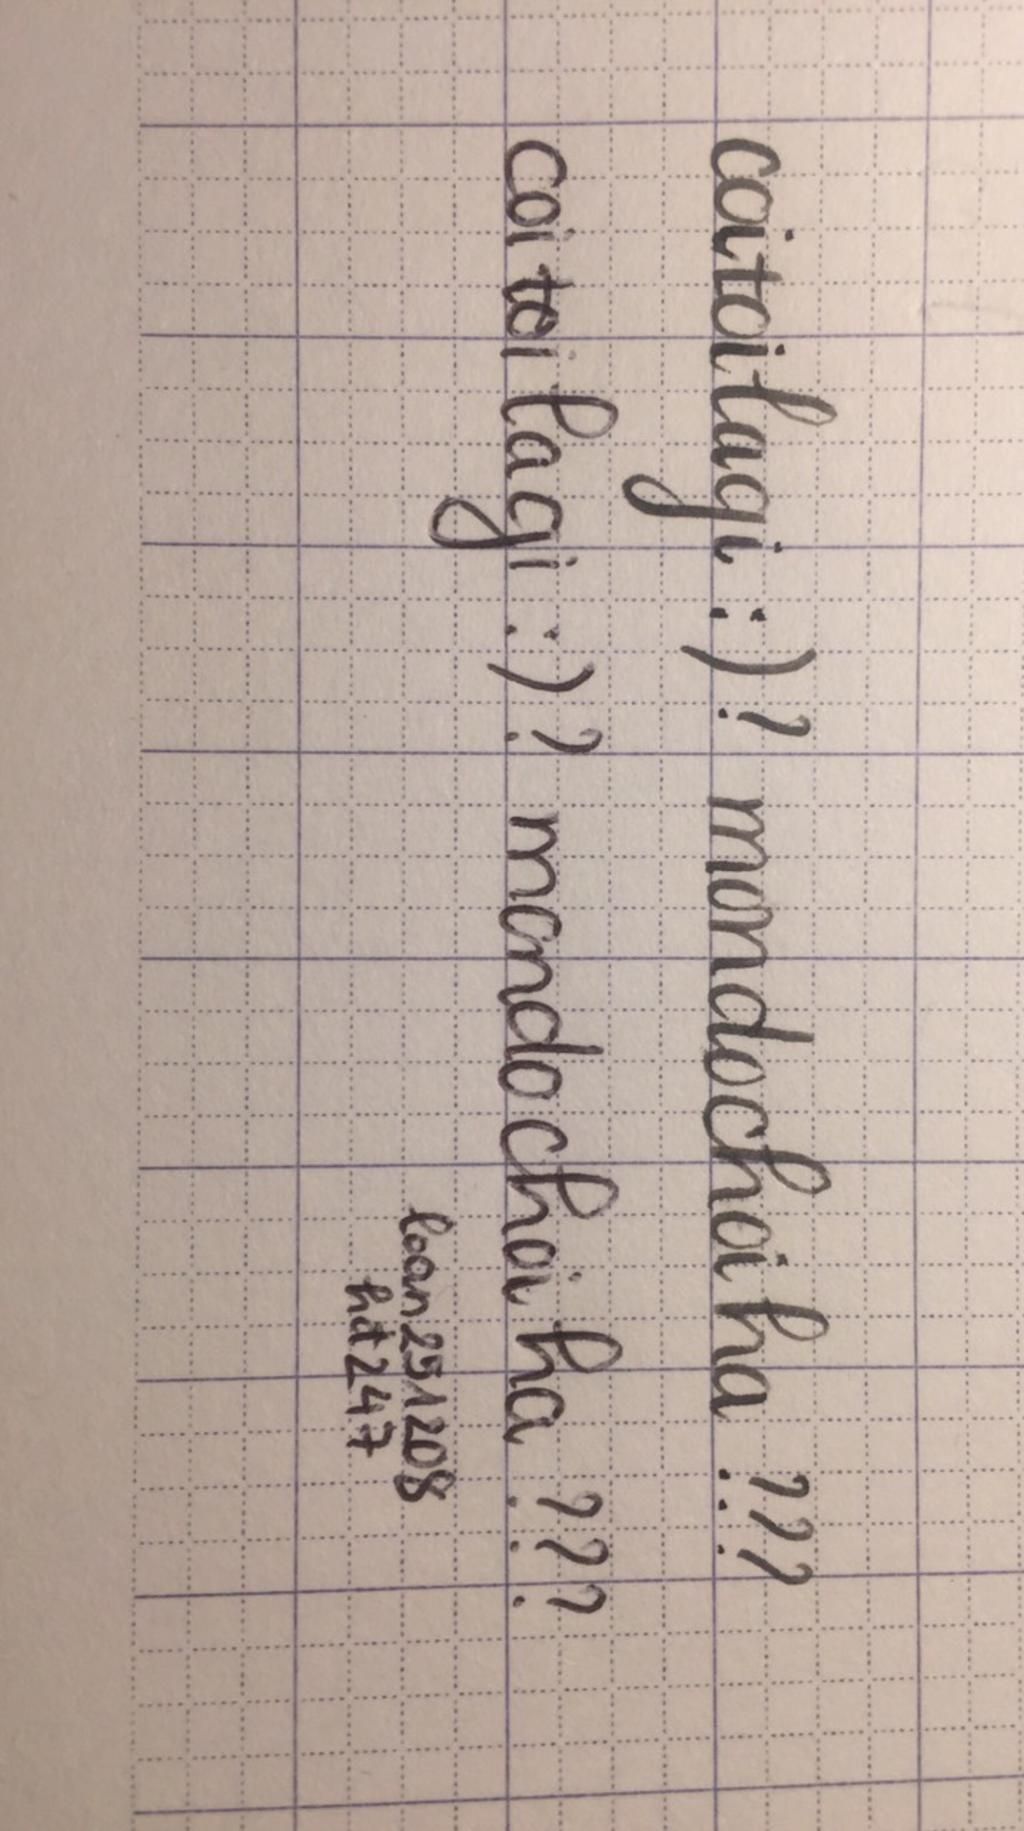 coitoilagi :)? mondochoiha ???
coitoilagi :)? mondochoiha ???
loan251208
hd247